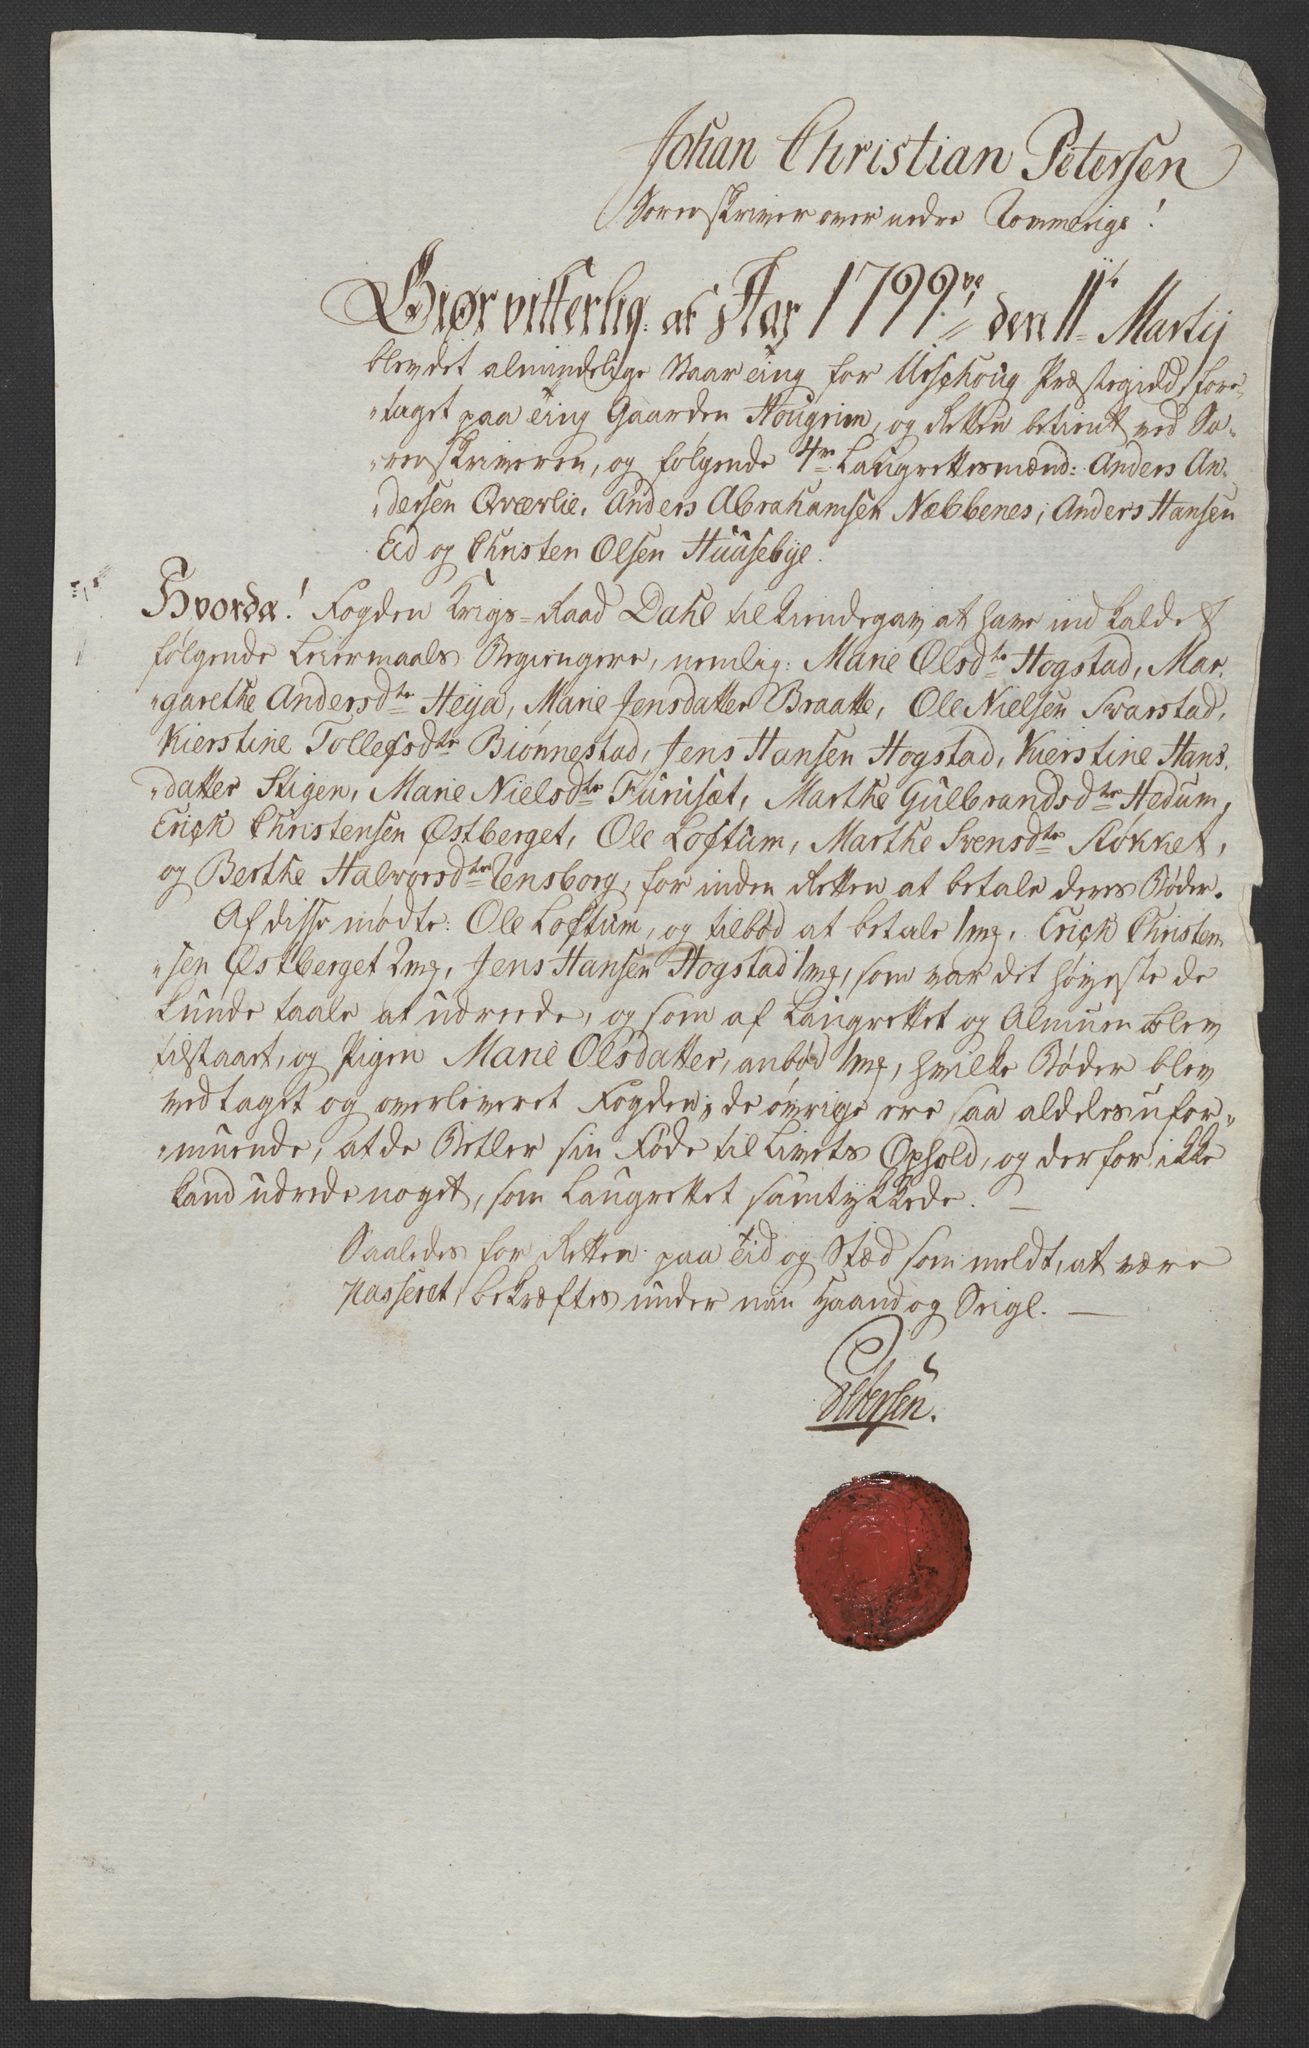 Johan Christian Petersen
Sorenskriver over nedre Rommerige!
Giør vitterlig: at Aar 1799ve den 11te Martij
blev det almindelige Vaar Ting for Urschoug Præstegield, fore-
„taget paa Ting Gaarden Hougrim, og Retten betient ved So-
„renskriveren, og følgende 4re Laugrettesmænd: Anders An-
„dersen Qværlie, Anders Abrahamsen Næbbenes, Anders Hansen
Eid og Christen Olsen Huusebye.
Hvorda! Fogden Krigs-Raad Dahl tilkiendegav at have indkaldet
følgende Leiermaals Begiengere, nemlig: Marie Olsdtr Hogstad, Mar-
„garethe Andersdtr Heya, Marie Jensdatter Braatte, Ole Nielsen Svarstad,
Kierstine Tollefsdtr Biønnestad, Jens Hansen Hogstad, Kierstine Hans-
„datter Stigen, Marie Nielsdtr Furuset, Marthe Gulbrandsdtr Hedum,
Erich Christensen Østberget, Ole Loftum, Marthe Svensdtr Røkket,
og Berthe Halvorsdtr Tensborg, for inden Retten at betale deres Bøder.
Af disse mødte: Ole Loftum, og tilbød at betale 1 mk, Erich Christen-
„sen Østberget 2 mk, Jens Hansen Hogstad 1 mk, som var det høyeste de
kunde taale at udreede, og som af Laugrettet og Almuen blev
tilstaaet, og Pigen Marie Olsdatter, anbød 1 mk, hvilke Bøder blev
vedtaget og overleveret Fogden; de øvrige ere saa aldeles ufor-
„muende, at de Betler sin Føde til Livets Ophold, og derfor ikke
kand udrede noget, som Laugrettet samtykkede. —
Saaledes for Retten paa Tid og Stæd som meldt, at være
passeret, bekræftes under min Haand og Seigl. —
Petersen.